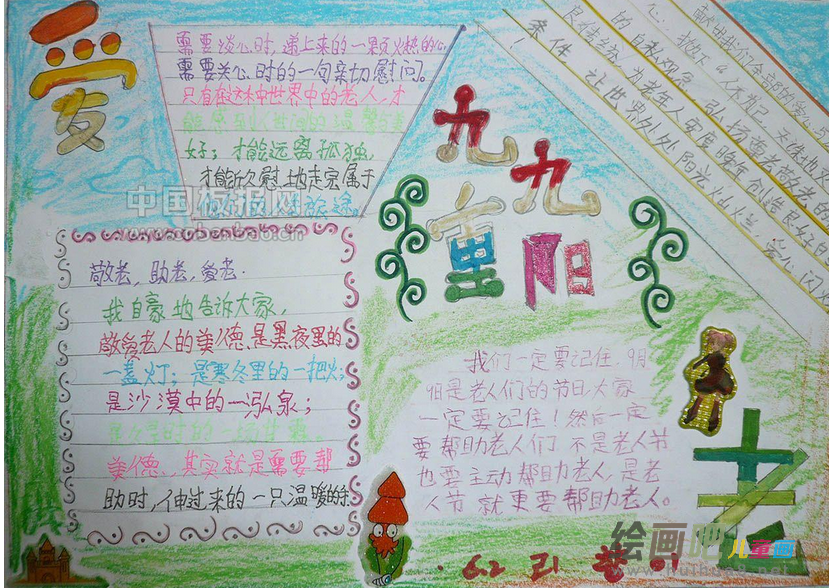 爱
友
需要谈心时，递上来的一颗火热的心
需要关心时的一句亲切慰问。
只有在这种世界中的老人，才
能感
好；才能远离孤独，
才能欣慰地走完属于
九九
重阳
献出我们全部的爱心
的自私观念，弘扬尊老敬老的
良传统，为老年人安度晚年创造良好的
条件，让世界处处阳光灿烂，爱心闪
！
敬老，助老，爱老.
我自豪地告诉大家，
敬爱老人的美德是黑夜里的
一盏灯；是寒冬里的一把火；
是沙漠中的一泓泉；
是久旱时的一场甘霖。
美德，其实就是需要帮
助时，伸过来的一只温暖的
我们一定要记住，9月
9日是老人们的节日，大家
一定要记住！然后一定
要帮助老人们，不是老人节
也要主动帮助老人，是老
人节就更要帮助老人。
老
6.2
中国板报网
绘画吧 儿童画